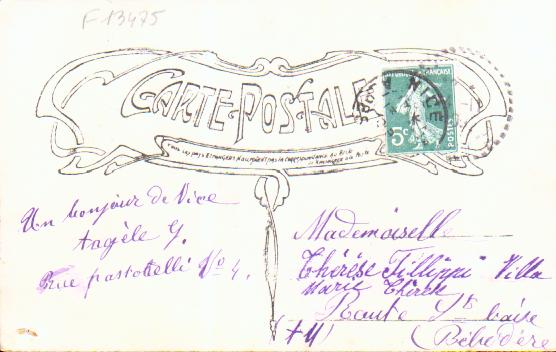 F 13475
CARTE POSTALE
NICE
RÉPUBLIQUE FRANÇAISE
5c
POSTES
Tous les pays étrangers n'acceptent pas la correspondance au recto
Un bonjour de Nice
Angèle G.
Rue pastorelli No 4.
Mademoiselle
Thérèse Fillippi Villa
Marie Thérèse
Route
(Belvédère